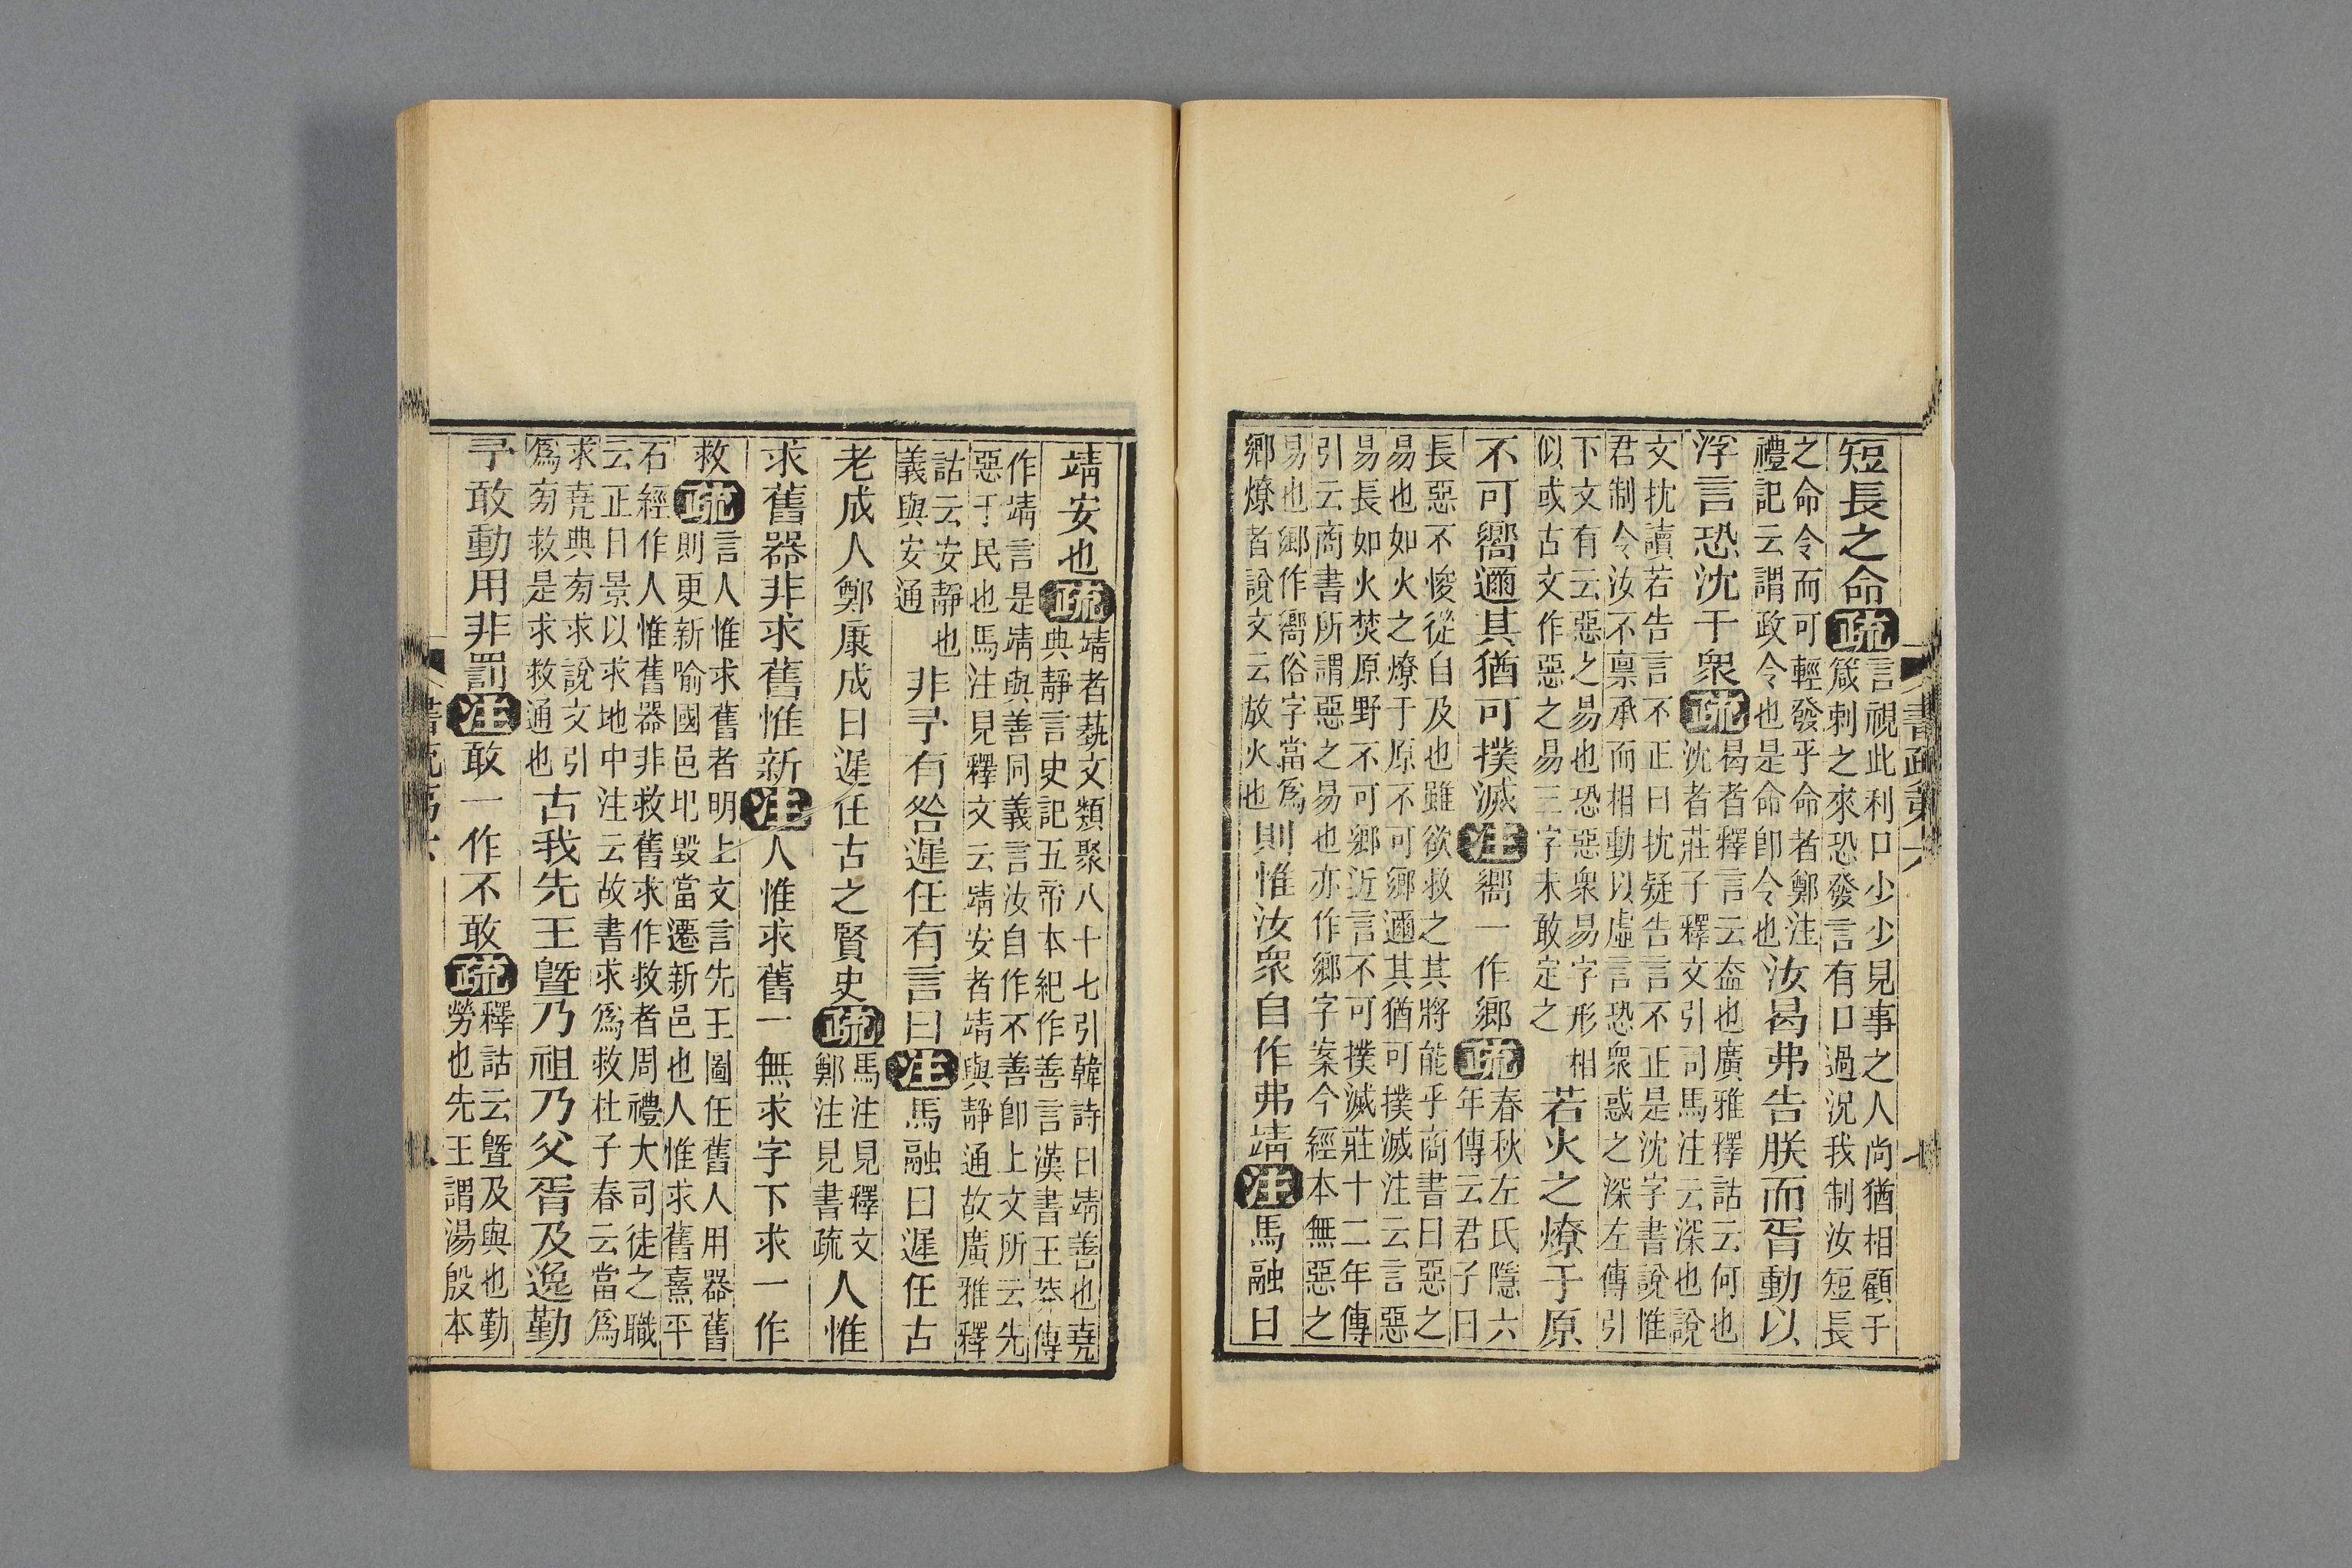 書疏第六
七
短長之命疏言視此利口少少見事之人尚猶相顧于
箴刺之來恐發言有口過況我制汝短長
之命令而可輕發乎命者鄭注
禮記云謂政令也是命卽令也
汝曷弗告朕而胥動以
浮言恐沈于衆疏曷者釋言云盍也廣雅釋詁云何也
沈者莊子釋文引司馬注云深也說
文抌讀若告言不正曰抌疑告言不正是沈字書說惟
君制令汝不禀承而相動以虛言恐衆惑之深左傳引
下文有云惡之易也恐惡衆易字形相
似或古文作惡之易三字未敢定之
若火之燎于原
不可嚮邇其猶可撲滅注嚮一作鄉疏春秋左氏隱六
年傳云君子曰
長惡不悛從自及也雖欲救之其將能乎商書曰惡之
易也如火之燎于原不可鄉邇其猶可撲滅注云言惡
易長如火焚原野不可鄉近言不可撲滅莊十二年傳
引云商書所謂惡之易也亦作鄉字案今經本無惡之
易也鄉作嚮俗字當爲
鄉燎者說文云放火也
則惟汝衆自作弗靖注馬融曰
靖安也疏靖者蓺文類聚八十七引韓詩曰靖善也堯
典靜言史記五帝本紀作善言漢書王莽傳
作靖言是靖與善同義言汝自作不善卽上文所云先
惡于民也馬注見釋文云靖安者靖與靜通故廣雅釋
詁云安靜也
義與安通
非予有咎遲任有言曰注馬融曰遲任古
老成人鄭康成曰遲任古之賢史疏馬注見釋文
鄭注見書疏
人惟
求舊器非求舊惟新注人惟求舊一無求字下求一作
救疏言人惟求舊者明上文言先王圖任舊人用器舊
則更新喻國邑圯毀當遷新邑也人惟求舊熹平
石經作人惟舊器非救舊求作救者周禮大司徒之職
云正日景以求地中注云故書求爲救杜子春云當爲
求堯典㫄求說文引
爲㫄救是求救通也
古我先王曁乃祖乃父胥及逸勤
予敢動用非罰注敢一作不敢疏釋詁云曁及與也勤
勞也先王謂湯殷本